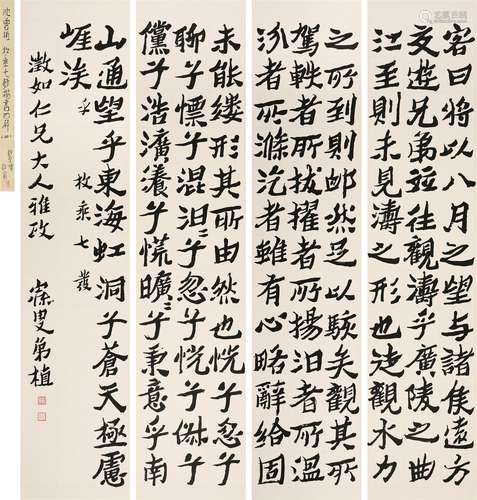 客曰將以八月之望與諸侯遠方
交遊兄弟並往觀濤乎廣陵之曲
江至則未見濤之形也徒觀水力
之所到則卹然足以駭矣觀其所
駕軼者所拔擢者所揚汩者所溫
汾者所滌汔者雖有心略辭給固
未能縷形其所由然也恍兮忽兮
聊兮慄兮混汩〻兮忽兮恍兮俶兮
儻兮浩瀇瀁兮慌曠〻兮秉意乎南
山通望乎東海虹洞兮蒼天極慮
崖涘 乎 枚乘七發
澂如仁兄大人雅政 寐叟弟植